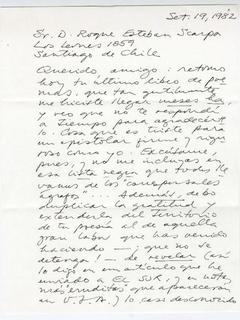 Set. 19, 1982
Sr. D. Roque Esteban Scarpa
Los Leones 1859
Santiago de Chile
Querido amigo: retomo
hoy tu último libro de poe-
mas, que tan gentilmente
me hiciste llegar meses ha,
y veo que no te respondí
a tiempo para agradecért-
lo. Cosa que es triste para
un epistolar firme y rigu-
roso como yo. Excúsame,
pues, y no me incluyas en
esa lista negra que todos lle-
vamos de los corresponsales
ingratos... Además, debo
duplicar la gratitud y
extenderla del territorio
de tu poesía al de aquella
gran labor que has venido
haciendo — ¡que no se
detenga! — de revelar (así
lo dijo en un artículo que he
enviado a EL SUR, y en notas
más eruditas que aparecerán
en U.S.A.) lo casi desconocido